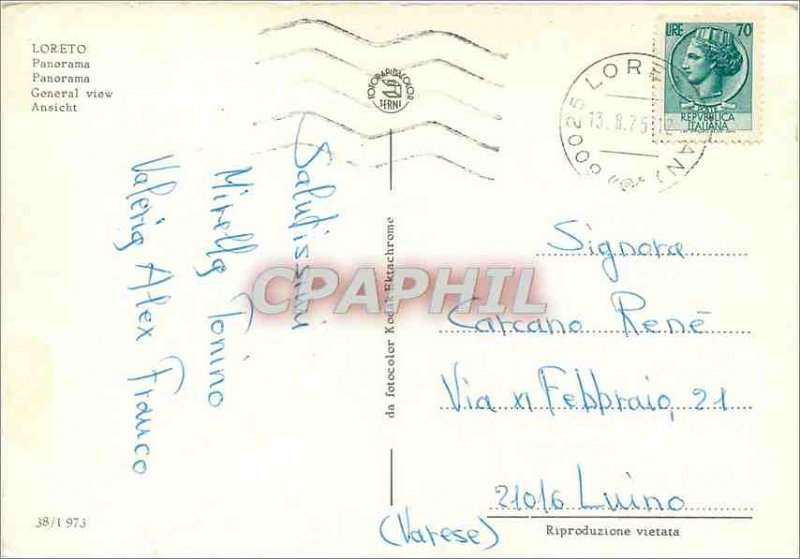 LORETO
Panorama
Panorama
General view
Ansicht
FOTORAPIDACOLOR
TERNI
60025 LOR
13.8.75
AN)
LIRE 70
POSTE
REPVBBLICA
ITALIANA
Salutissimi
Mirella Tonino
Valeria Alex Franco
da fotocolor Kodak Ektachrome
CPAPHIL
Signora
Carcano René
Via XI Febbraio, 21
21016 Luino
(Varese)
38/1973
Riproduzione vietata